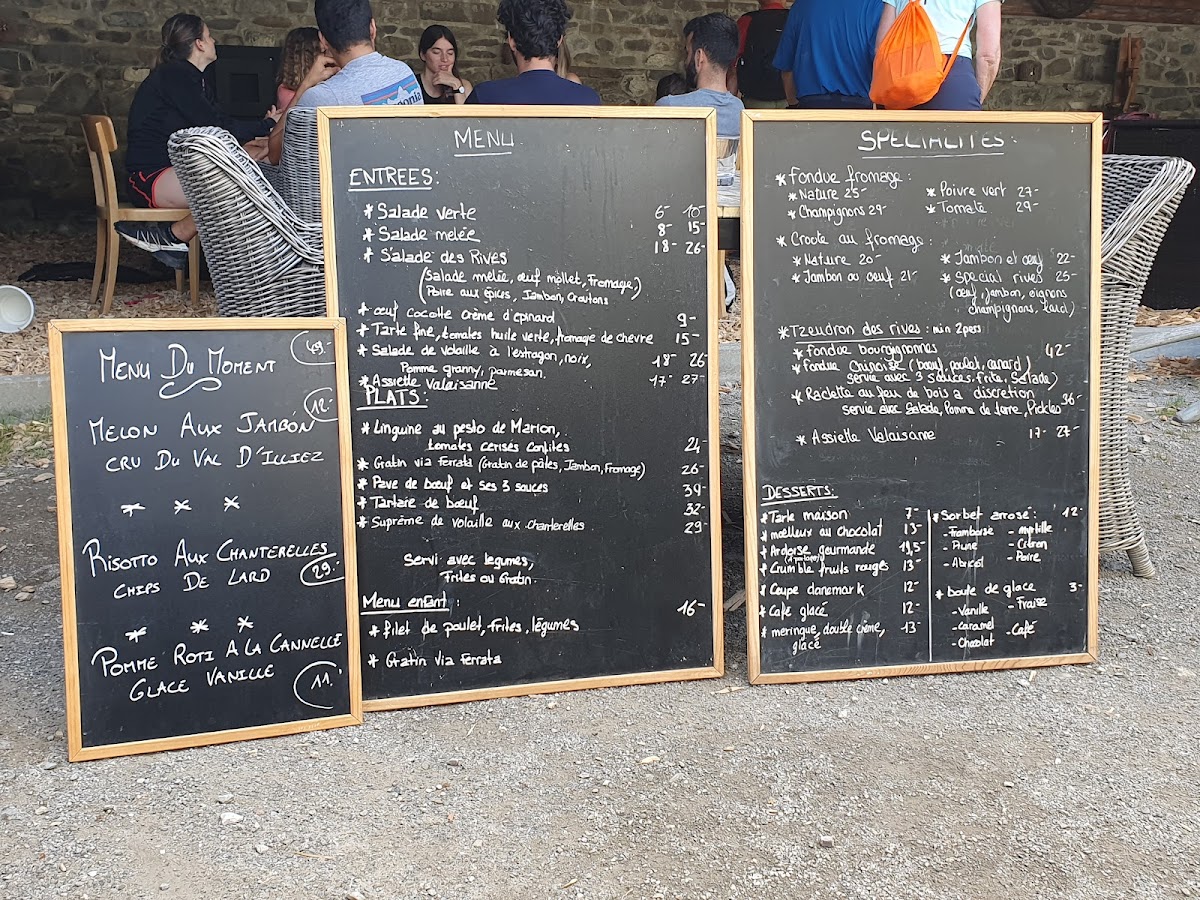 MENU DU MOMENT 49.-
12.-
MELON AUX JAMBON
CRU DU VAL D'ILLIEZ
* * *
RISOTTO AUX CHANTERELLES
CHIPS DE LARD 29.-
* * *
POMME ROTI A LA CANNELLE
GLACE VANILLE 11.-
MENU
ENTREES:
* Salade verte 6- 10-
* Salade melée 8- 15-
* Salade des Rives 18- 26-
(Salade melée, œuf mollet, fromage,
Poire aux épices, Jambon, Croutons)
* œuf cocotte crème d'épinard 9-
* Tarte fine, tomates huile verte, fromage de chevre 15-
* Salade de volaille à l'estragon, noix, 18- 26-
Pomme granny, parmesan.
* Assiette Valaisanne 17- 27-
PLATS:
* Linguine au pesto de Marion,
tomates cerises confites 24-
* Gratin via ferrata (Gratin de pâtes, Jambon, Fromage) 26-
* Pave de bœuf et ses 3 sauces 39-
* Tartare de bœuf 32-
* Suprême de volaille aux chanterelles 29-
Servi avec legumes,
Frites ou Gratin.
Menu enfant: 16-
* filet de poulet, frites, légumes
* Gratin via Ferrata
SPECIALITES:
* Fondue fromage:
* Nature 25- * Poivre vert 27-
* Champignons 29- * Tomate 29-
* Croote au fromage:
* Nature 20- * Jambon et œuf 22-
* Jambon ou œuf 21- * Special rives 25-
(œuf, jambon, oignons
champignons, lard)
* Tzeudron des rives: min 2pers
* fondue bourguignonnes 42-
* fondue Chinoise (bœuf, poulet, canard)
servie avec 3 sauces, frite, Salade)
* Raclette au feu de bois a discretion 36-
servie avec Salade, Pomme de terre, Pickles
* Assiette Valaisanne 17- 27-
DESSERTS:
* Tarte maison 7-
* moelleux au chocolat 13-
* Ardoise gourmande 19,5-
(a partager)
* Crumble fruits rouges 13-
* Coupe danemark 12-
* Café glacé 12-
* meringue, double crème, 13-
glacé
* Sorbet arrosé: 12-
- Framboise - myrtille
- Prune - Citron
- Abricot - Poire
* boule de glace 3-
- Vanille - Fraise
- Caramel - Café
- Chocolat